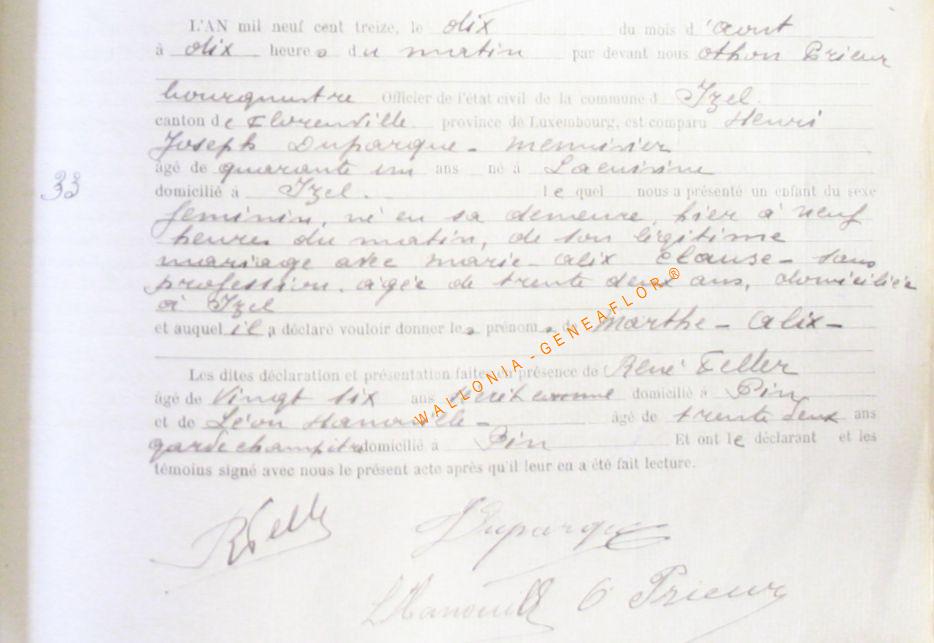 L'AN mil neuf cent treize, le dix du mois d'août
à dix heures du matin par devant nous Othon Prieur
bourgmestre Officier de l'état civil de la commune d Izel.
canton de Florenville province de Luxembourg, est comparu Henri
Joseph Duparque - menuisier
âgé de quarante un ans né à Lacuisine
33
domicilié à Izel. le quel nous a présenté un enfant du sexe
feminin, né en sa demeure, hier à neuf
heures du matin, de son légitime
mariage avec Marie-Alix Clause - sans
profession, âgée de trente deux ans, domiciliée
à Izel
et auquel il a déclaré vouloir donner les prénoms de Marthe-Alix-
Les dites déclaration et présentation faites en présence de René Feller
âgé de vingt six ans domicilié à Pin
et de Léon Hanouille - âgé de trente deux ans
garde champêtre domicilié à Pin Et ont le déclarant et les
témoins signé avec nous le présent acte après qu'il leur en a été fait lecture.
WALLONIA - GENEAFLOR®
RFeller
HDuparque
LHanouille O Prieur